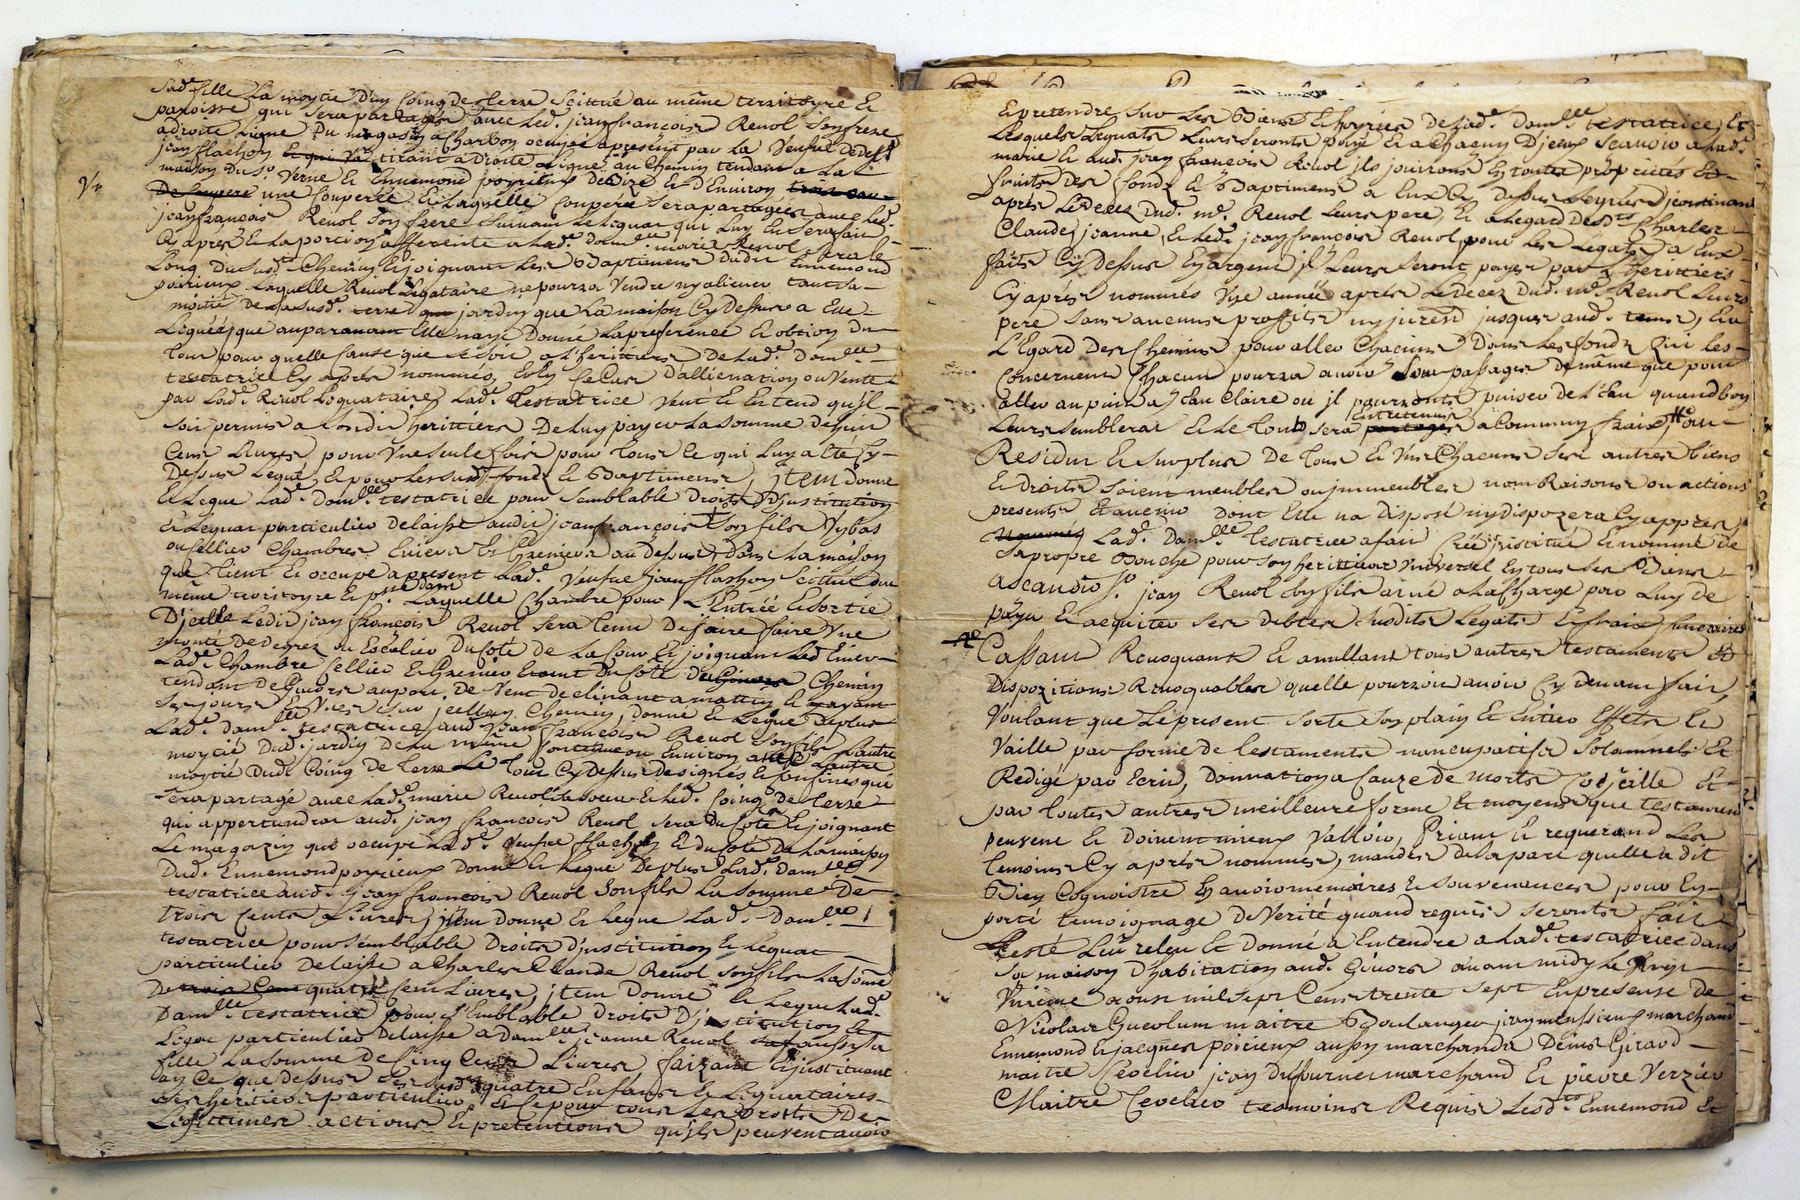 Lad.e fille La moytié D'un Coing de terre Scittué au même territoyre Et
paroisse qui sera partagée avec Led. jean françois Revol son frere
a droite Ligne Du magasin a Charbon ocupée apresent par La Veufve de deft
jean flachon Et qui Va tirant a Droite Ligne au Chemin tendant a La
maison du S.r Verne Et Ennemond poyrieux De dizé Et D'Environ trois cou
V.e
De Couperé une Couperée Et Laquelle Couperée sera partagée avec led.
jean françois Revol son frere suivant Le Legat qui Luy En sera fait
Cy après Et La portion afferente a Lad.e Dam.lle marie Revol sera le
Long Du susd. Chemin Et joignant Les Baptimens Dudit Ennemond
poirieux Laquelle Revol Legataire ne pourra Vendre ny aliener tant Sa
moitié De La susd.e terre que jardin que La maison Cy Dessus a Elle
Leguée, que auparavant Elle naye Donné La preference Et obtion Du
tout pour quelle Cause que ce soit a L'herittiers De Lad.e Dam.lle
testatrice Cy après nommés, Et En Cas D'allienation ou Vente
par Lad.e Revol Legataire, Lad.e Testatrice Veut Et Entend qu'il
soit permis a sondit herittiers De Luy payer La somme de huit
Cens Livres pour Une seule fois pour tous Ce qui Luy a êté Cy
Dessus Legué, Et pour Les susd. fonds Et Baptimens, jtem donne
Et Legue Lad.e Dam.lle testatrice pour semblable Droits D'justitution
Et Legat particulier Delaisse audit jean françois son fils Un bas
ou Cellier Chambres Eviers Et Grenier au Dessus, dans La maison
que tient Et occupe apresent Lad.e Veufve jean flachon Scittué au
même territoyre Et p.sse dans Laquelle Chambre pour L'Entrée Et sortie
D'jcelle Ledit jean françois Revol sera tenu De faire faire Une
monté de degrez ou Escalier Du Coté De La Cour Et joignant Led. Evier
Lad.e Chambre Cellier Et Grenier Etant Du Coté Du Chemin
tendant De Givors au port, De Vent declinant a mattin Et ayant
ses jours Et Vues sur jcelluy Chemin, Donne Et Legue De plus
Lad.e Dam.lle testatrice aud. jean françois Revol son fils L'autre
moytié Dud. jardin De La même Contenue ou Environ avec L'autre
moytié Dud. Coing de terre Le tout Cy Dessus Designés Et Confinés qui
sera partagé avec Lad.e marie Revol sa soeur Et Led. Coing De terre
qui appertiendrat aud. jean françois Revol sera Du Coté Et joignant
Le magazin que occupe Lad.e Veufve flachon Et Du Coté De La maison
Dud. Ennemond poirieux donne Et Legue De plus Lad.e Dam.lle
testatrice aud. jean françois Revol Son fils La somme De
trois Cents Livres, jtem Donne Et Legue Lad.e Dam.lle
testatrice pour semblable Droits D'justitution Et Legat
particulier Delaisse a Charles Claude Revol son fils La some
De trois Cent quatre Cent Livres, jtem Donne Et Legue Lad.e
Dam.lle testatrice pour semblable Droits D'justitution Et
Legat particulier Delaisse a Dam.lle jeanne Revol sa
fille La somme De Cinq Cent Livres, faizant Et justituant
En Ce que dessus Ses susd. quatre Enfans Et Legataires
Ses heritiers particulier Et Ce pour tous Les Droits De
Legittimes actions Et pretentions qu'ils peuvent avoir
Et pretendre sur Les Biens Et hoyries De Lad.e Dam.lle testatrice, Et
Lesquels Legats Leurs seronts payé Et a chacun D'jeux scavoir a Lad.e
marie Et aud. jean françois Revol ils jouirons En toutes proprietés Et
fruits des fonds Et Baptimens a Eux Cy dessus Legués D'jcontinant
après Le Decez Dud. m.e Revol Leurs pere, Et a Legard Desd.ts Charles
Claude, jeanne, Et Led. jean françois Revol pour Les Legats a Eux
faits Cy Dessus En argent jl Leurs seront payes par L'herittiers
Cy après nommés Une année après Le Decez Dud. m.e Revol Leurs
pere sans aucuns proffits ny jnterêts jusques aud. tems, Et a
L'Egard Des Chemins pour aller Chacuns Dans Les fonds qui Les
Concernent Chacun pourra avoir Son passage De même que pour
aller au puits a Eau Claire ou jl pourronts puiser de L'Eau quand bon
Leurs semblerat Et Le tout sera partage Entretenus a Commun fraix, au
Residu Et surplus De tous Et Uns Chacuns Ses autres Biens
Et droits soient meubles ou jmmeubles nom Raisons ou actions
presents Et avenir dont Elle na disposé ny dispozera Cy appres
Nommés Lad.e Dam.lle Testatrice a fait Créé justitué Et nommé de
Sa propre Bouche pour son herittier Universel En tous ses Biens
a scavoir S.r jean Revol son fils ainé a La Charge par Luy de
payer Et acquiter ses debtes susdits Legats Et fraix funeraires
Cassant Revoquant Et anullant tous autres testaments Et
Dispozitions Revoquables quelle pourroit avoir Cy devant fait,
Voulant que Le present sorte son plain Et Entier Effets Et
Vaille par forme de testaments nuncupatifs Solamnels Et
Redigé par Ecrit, Donnation a Cauze de morts Codicille Et
par toutes autres meilleure forme Et moyens que testament
peuvent Et doivent mieux Valloir, Priant Et requerant Les
temoins Cy après nommés, mandés de sa part quelle a dit
Bien Cognoistre En avoir memoires Et souvenances pour En
porté temoignage De Verité quand requis seronts fait
Testé Leu releu Et donné a Entendre a Lad.e testatrice dans
sa maison D'habitation aud. Givors avant midy Le Vingt
Unieme aoust mil sept Cens trente sept En presense De
Nicolas Gueolum maitre Boulanger jean messieux marchand
Ennemond Et jacques poirieux aussy marchands Denis Giraud
maitre jean Dufournet marchand Et pierre Verzier
Maitre temoins Requis Lesd.ts Ennemond Et